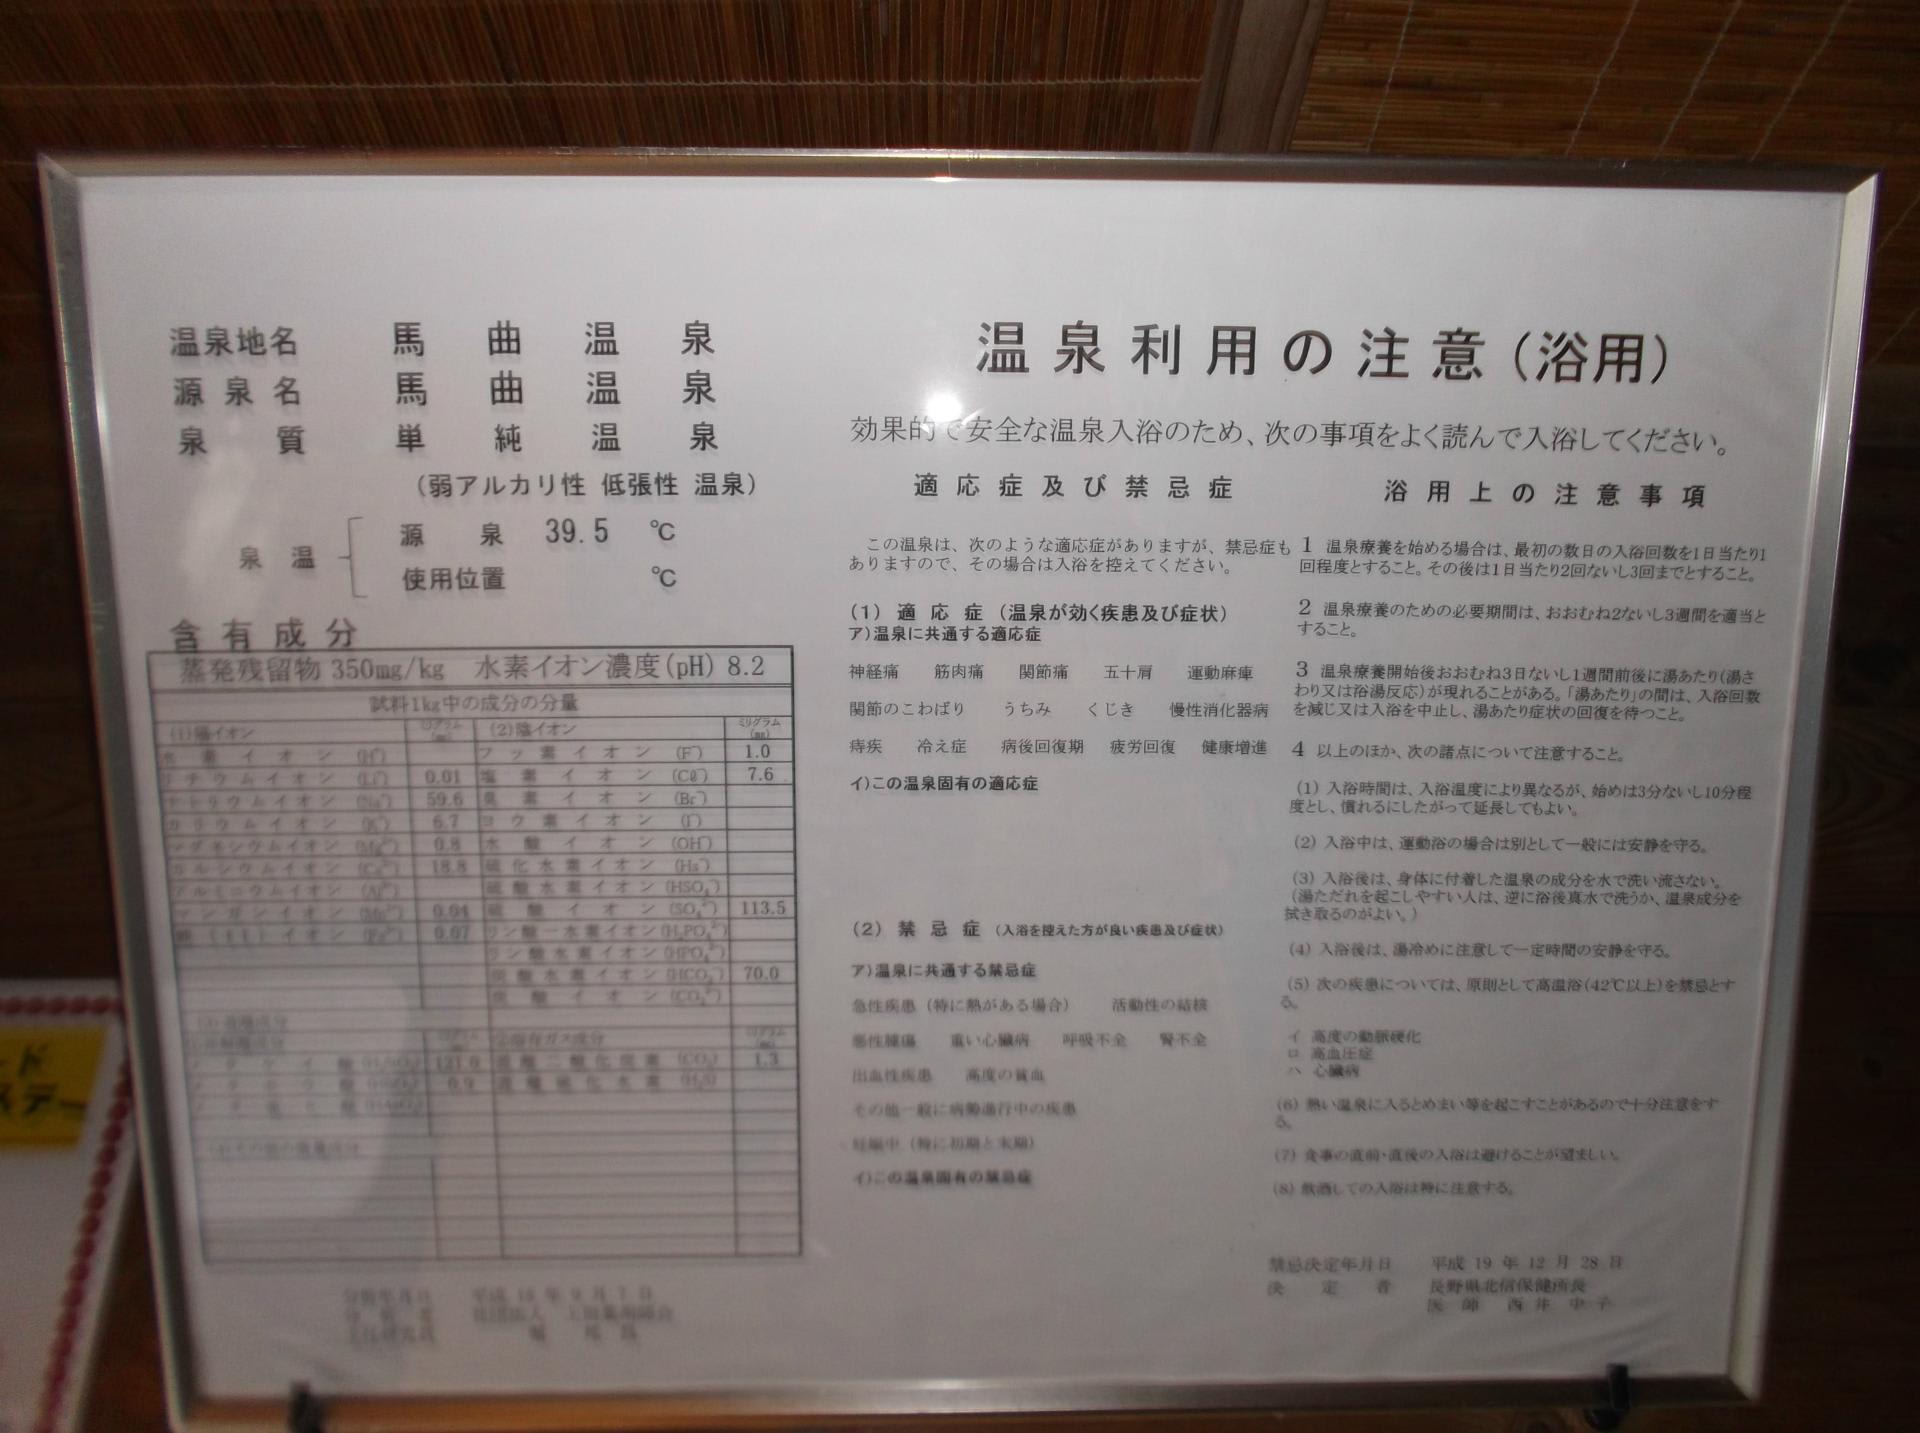 温泉地名 馬曲温泉
源泉名 馬曲温泉
泉質 単純温泉
(弱アルカリ性 低張性 温泉)
泉温
源泉 39.5 ℃
使用位置 ℃
含有成分
蒸発残留物 350mg/kg 水素イオン濃度(pH) 8.2
試料1kg中の成分の分量
(1)陽イオン ミリグラム(mg) (2)陰イオン ミリグラム(mg)
水素イオン (H⁺) フッ素イオン (F⁻) 1.0
リチウムイオン (Li⁺) 0.01 塩素イオン (Cℓ⁻) 7.6
ナトリウムイオン (Na⁺) 59.6 臭素イオン (Br⁻)
カリウムイオン (K⁺) 6.7 ヨウ素イオン (I⁻)
マグネシウムイオン (Mg²⁺) 0.8 水酸イオン (OH⁻)
カルシウムイオン (Ca²⁺) 18.8 硫化水素イオン (Hs⁻)
アルミニウムイオン (Al³⁺) 硫酸水素イオン (HSO₄⁻)
マンガンイオン (Mn²⁺) 0.04 硫酸イオン (SO₄²⁻) 113.5
鉄(II)イオン (Fe²⁺) 0.07 リン酸一水素イオン
リン酸水素イオン
炭酸水素イオン (HCO₃⁻) 70.0
炭酸イオン (CO₃²⁻)
(3)遊離成分
ミリグラム(mg) 溶存ガス成分 ミリグラム(mg)
メタケイ酸 121.0 遊離二酸化炭素 (CO₂) 1.3
メタホウ酸 0.9 遊離硫化水素 (H₂S)
その他の微量成分
分析年月日
温泉利用の注意(浴用)
効果的で安全な温泉入浴のため、次の事項をよく読んで入浴してください。
適応症及び禁忌症
この温泉は、次のような適応症がありますが、禁忌症も
ありますので、その場合は入浴を控えてください。
(1) 適応症 (温泉が効く疾患及び症状)
ア)温泉に共通する適応症
神経痛 筋肉痛 関節痛 五十肩 運動麻痺
関節のこわばり うちみ くじき 慢性消化器病
痔疾 冷え症 病後回復期 疲労回復 健康増進
イ)この温泉固有の適応症
(2) 禁忌症 (入浴を控えた方が良い疾患及び症状)
ア)温泉に共通する禁忌症
急性疾患(特に熱がある場合) 活動性の結核
悪性腫瘍 重い心臓病 呼吸不全 腎不全
出血性疾患 高度の貧血
その他一般に病勢進行中の疾患
妊娠中(特に初期と末期)
イ)この温泉固有の禁忌症
浴用上の注意事項
1 温泉療養を始める場合は、最初の数日の入浴回数を1日当たり1
回程度とすること。その後は1日当たり2回ないし3回までとすること。
2 温泉療養のための必要期間は、おおむね2ないし3週間を適当と
すること。
3 温泉療養開始後おおむね3日ないし1週間前後に湯あたり(湯さ
わり又は浴湯反応)が現れることがある。「湯あたり」の間は、入浴回数
を減じ又は入浴を中止し、湯あたり症状の回復を待つこと。
4 以上のほか、次の諸点について注意すること。
(1) 入浴時間は、入浴温度により異なるが、始めは3分ないし10分程
度とし、慣れるにしたがって延長してもよい。
(2) 入浴中は、運動浴の場合は別として一般には安静を守る。
(3) 入浴後は、身体に付着した温泉の成分を水で洗い流さない。
(湯ただれを起こしやすい人は、逆に浴後真水で洗うか、温泉成分を
拭き取るのがよい。)
(4) 入浴後は、湯冷めに注意して一定時間の安静を守る。
(5) 次の疾患については、原則として高温浴(42℃以上)を禁忌とす
る。
イ 高度の動脈硬化
ロ 高血圧症
ハ 心臓病
(6) 熱い温泉に入るとめまい等を起こすことがあるので十分注意をす
る。
(7) 食事の直前・直後の入浴は避けることが望ましい。
(8) 飲酒しての入浴は特に注意する。
禁忌決定年月日 平成 19 年 12 月 28 日
決定者 長野県北信保健所長
医師
ード
ステー